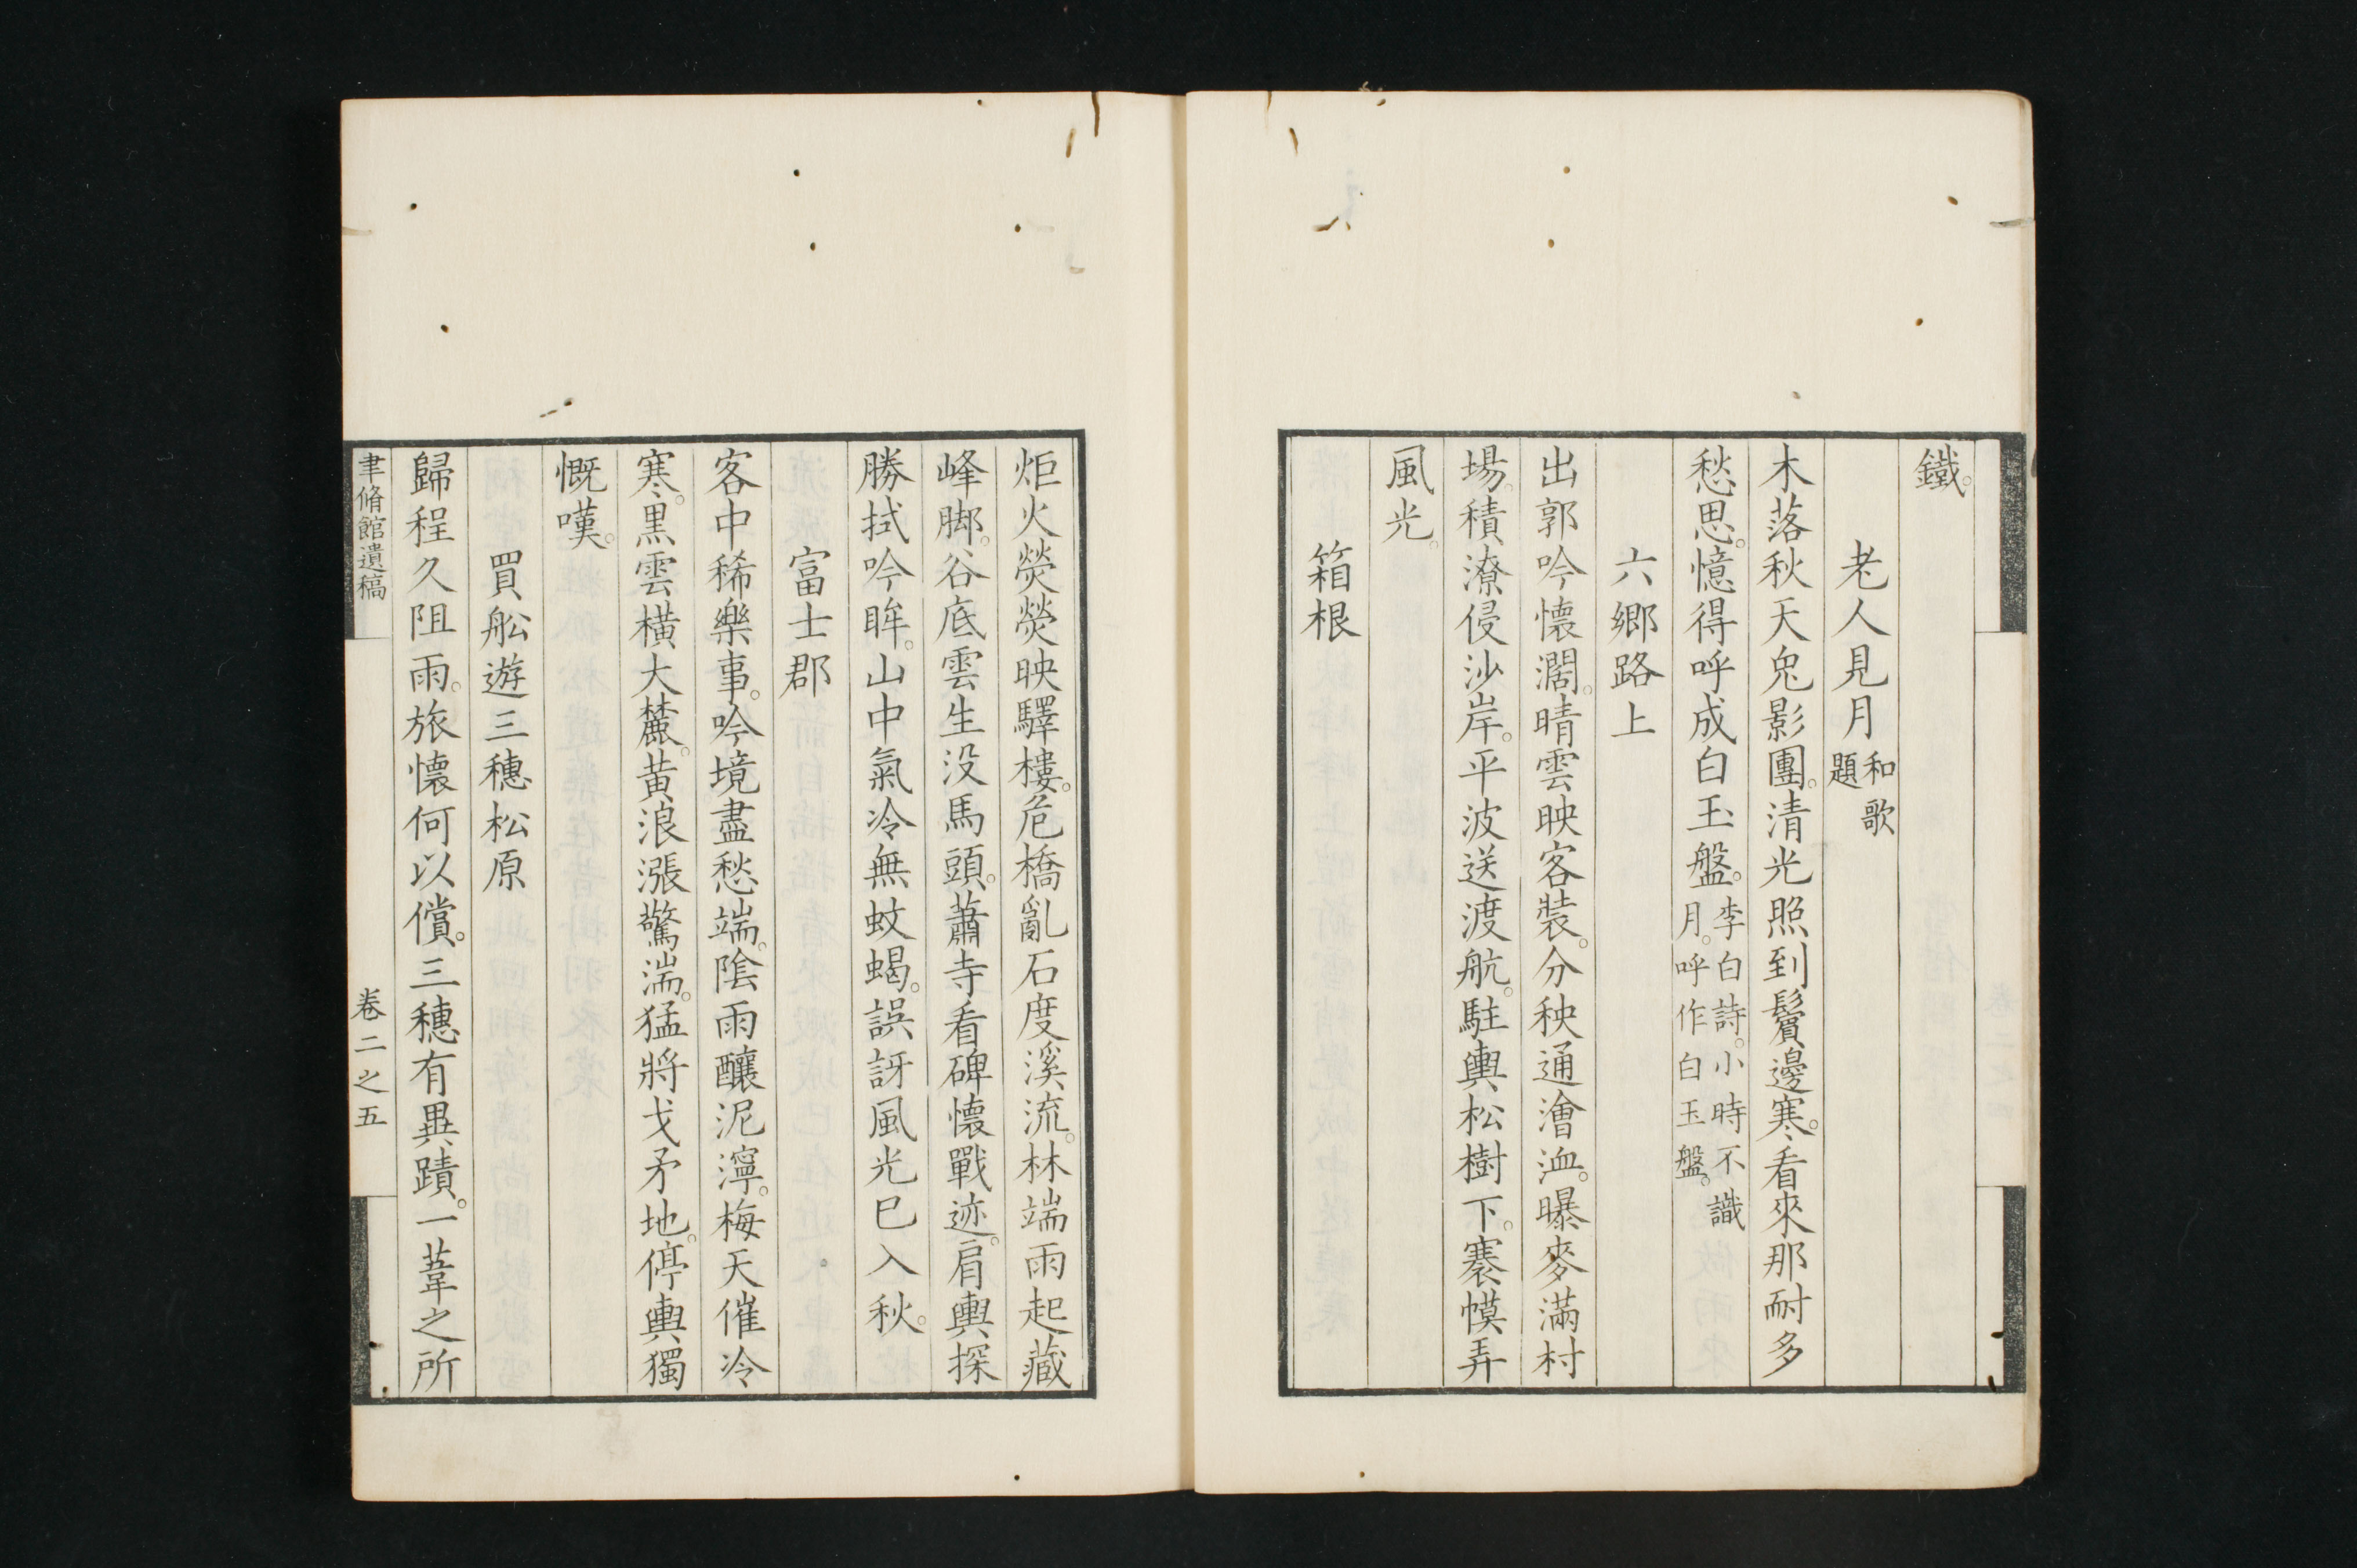 鐵。
老人見月 和歌題
木落秋天兔影團。清光照到鬢邊寒。看來那耐多
愁思。憶得呼成白玉盤。李白詩。小時不識月。呼作白玉盤。
六鄉路上
出郭吟懷濶。晴雲映客裝。分秧通澮洫。曝麥滿村
場。積潦侵沙岸。平波送渡航。駐輿松樹下。褰幙弄
風光。
箱根
炬火熒熒映驛樓。危橋亂石度溪流。林端雨起藏
峰脚。谷底雲生没馬頭。蕭寺看碑懷戰迹。肩輿探
勝拭吟眸。山中氣冷無蚊蝎。誤訝風光已入秋。
富士郡
客中稀樂事。吟境盡愁端。陰雨釀泥濘。梅天催冷
寒。黑雲橫大麓。黄浪漲驚湍。猛將戈矛地。停輿獨
慨嘆。
買舩遊三穗松原
歸程久阻雨。旅懷何以償。三穗有異蹟。一葦之所
聿脩館遺稿
卷二之五